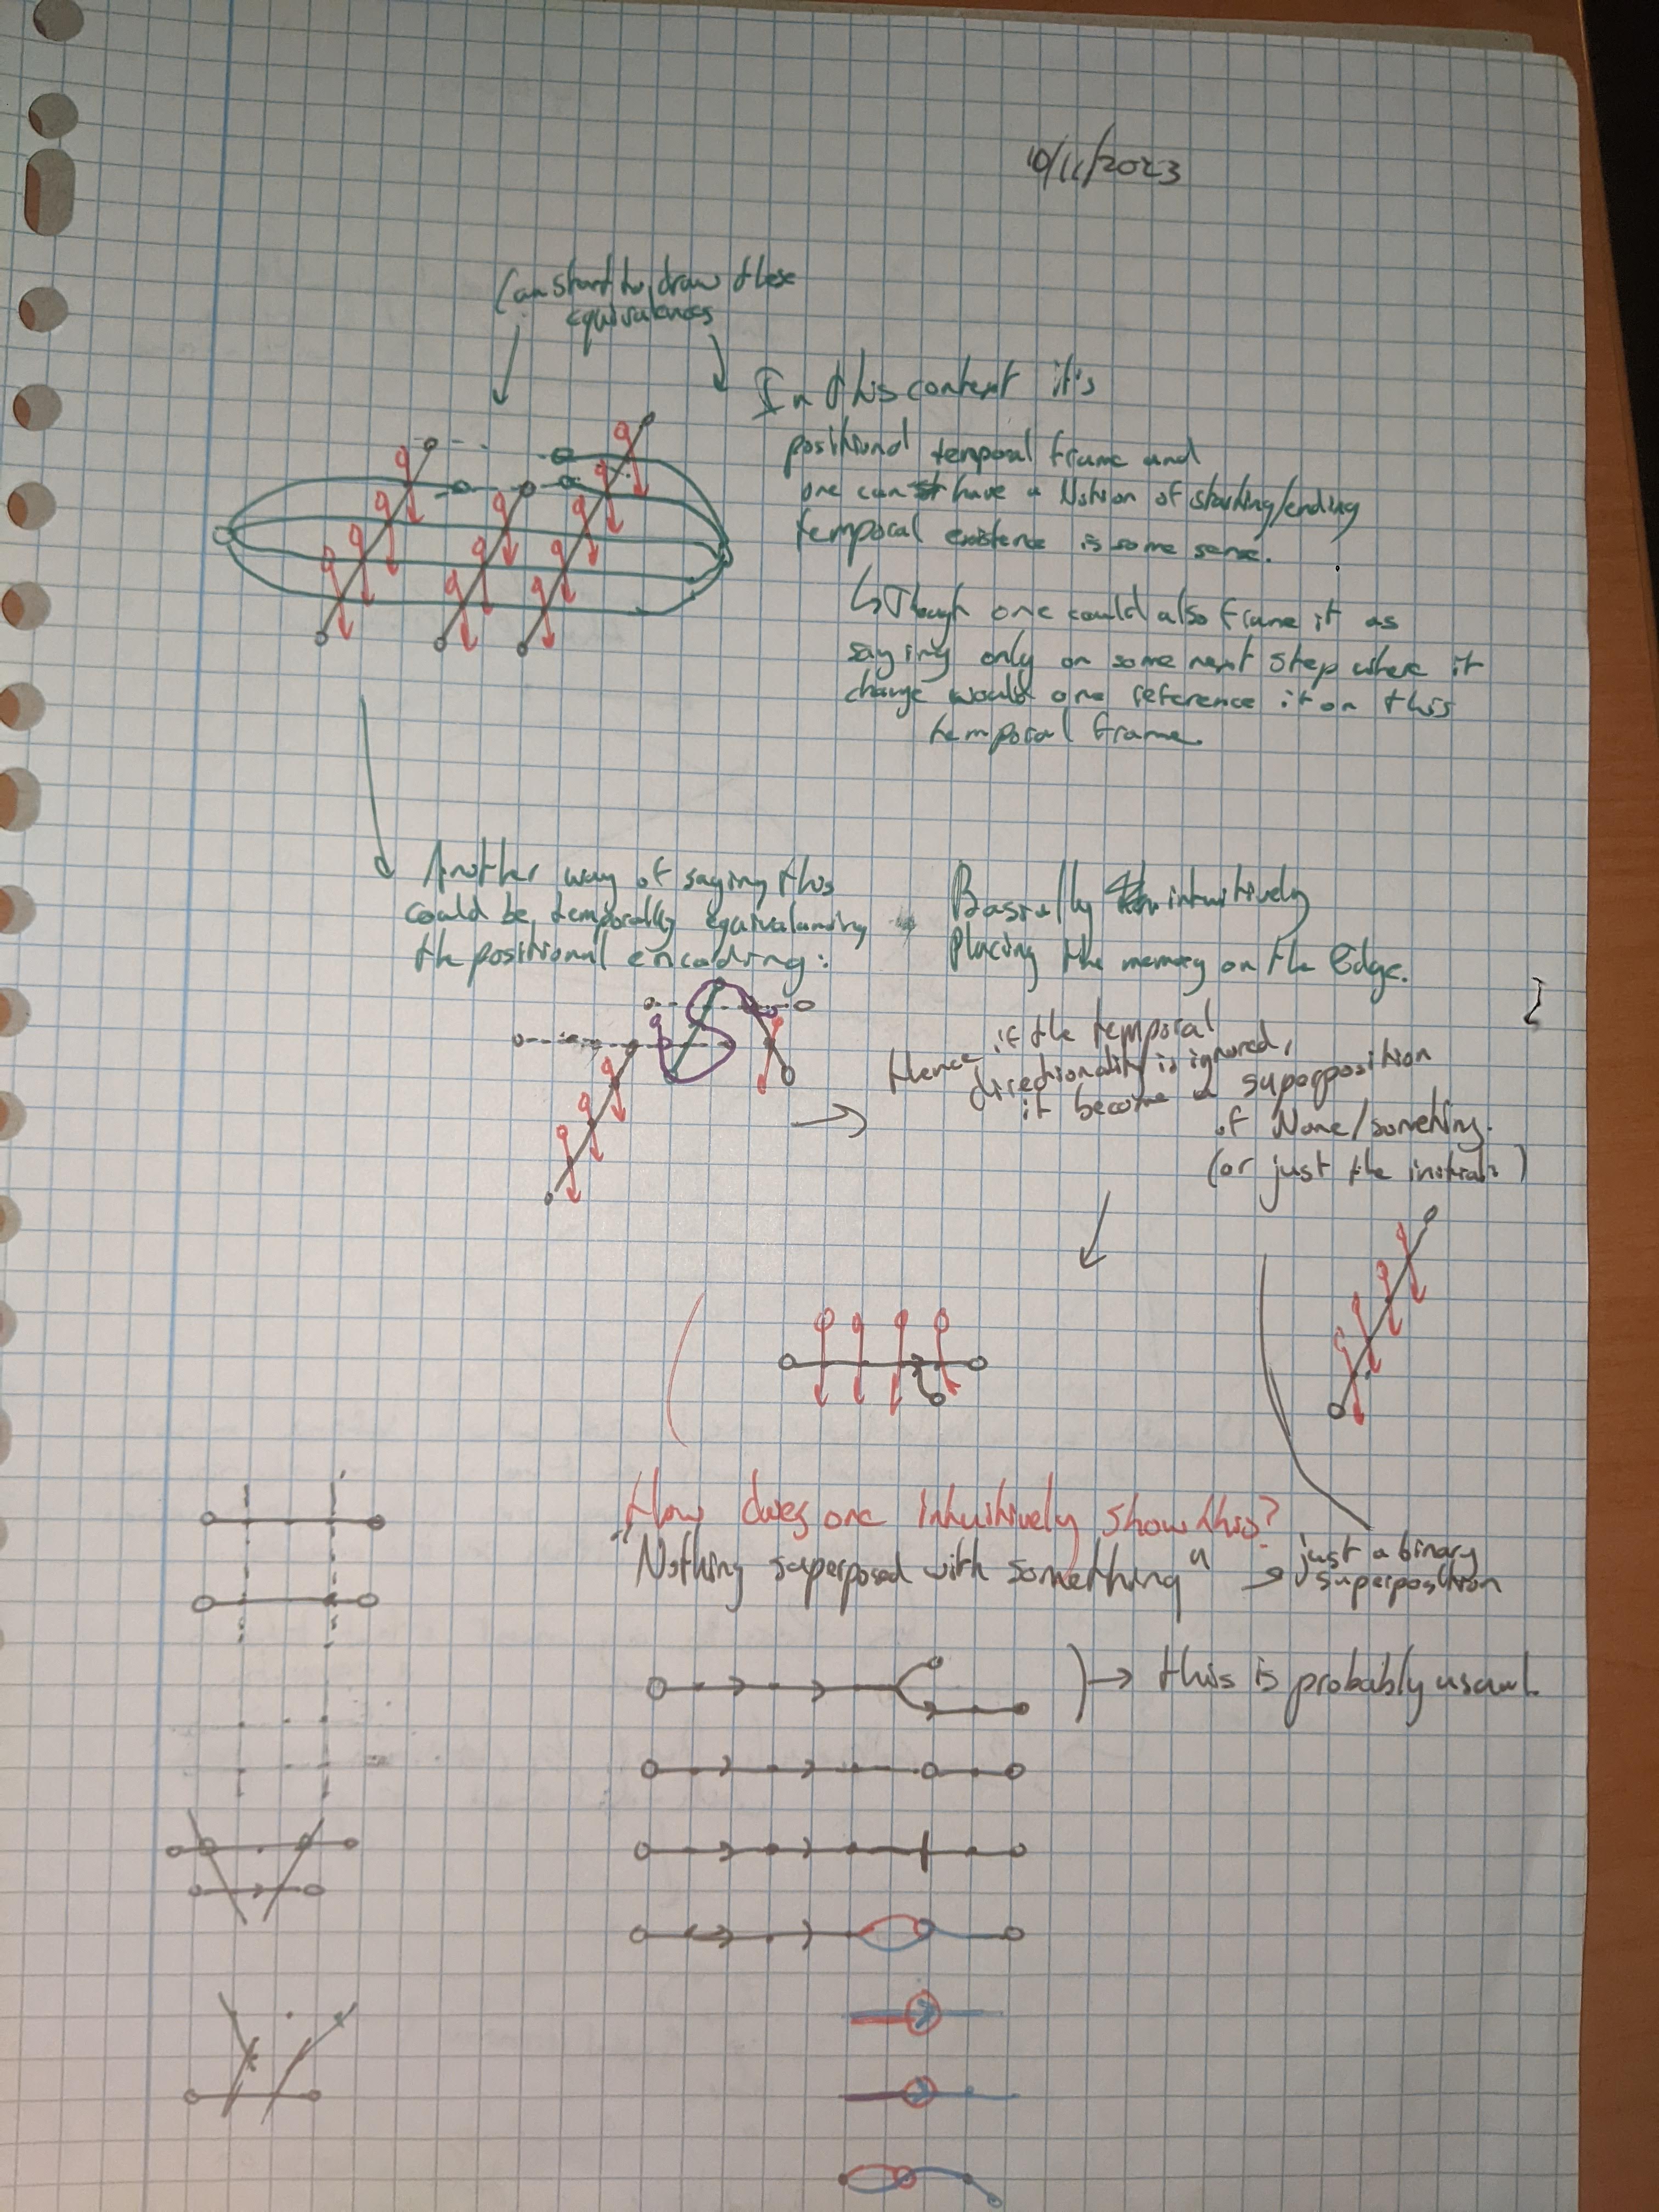 10/11/2023
Can start to draw these
equivalences
In this context it's
positional temporal frame and
one can have a Notion of starting/ending
temporal existence is some sense.
↳Though one could also frame it as
saying only on some next step where it
change would one reference it on this
temporal frame.
Another way of saying this
could be, temporally equivalancing
the positional encoding:
Basically intuitively
Placing the memory on the Edge.
Hence, if the temporal
directionality is ignored,
it become a superposition
of None/something.
(or just the initial)
How does one intuitively show this?
"Nothing superposed with something"
just a binary
superposition
this is probably usual.